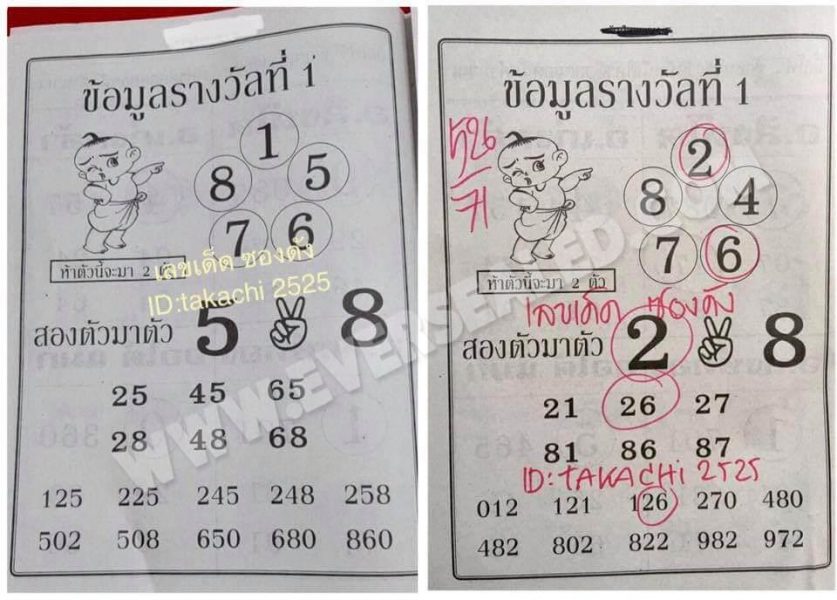 ข้อมูลรางวัลที่ 1
1
8 5
7 6
ห้าตัวนี้จะมา 2 ตัว
เลขเด็ด ซองดัง
ID:takachi 2525
สองตัวมาตัว 5 8
25 45 65
28 48 68
125 225 245 248 258
502 508 650 680 860
ข้อมูลรางวัลที่ 1
726
71
2
8 4
7 6
ห้าตัวนี้จะมา 2 ตัว
เลขเด็ด ซองดัง
สองตัวมาตัว 2 8
21 26 27
81 86 87
ID:TAKACHI 2525
012 121 126 270 480
482 802 822 982 972